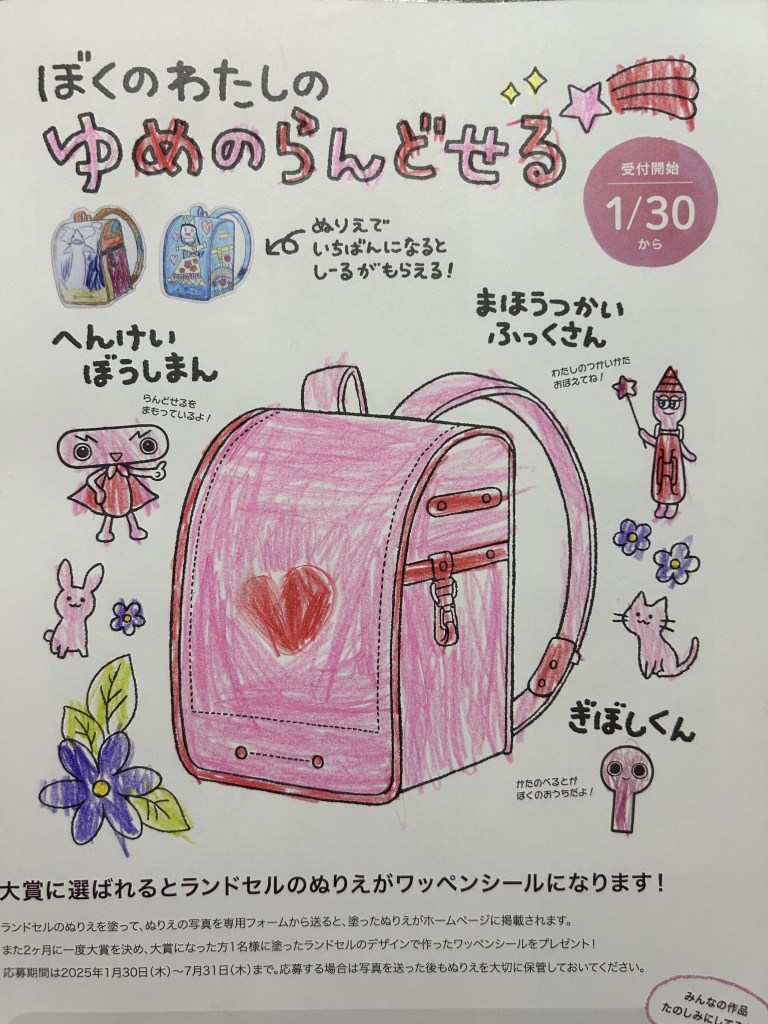 ぼくのわたしの
ゆめのらんどせる
受付開始
1/30
から
ぬりえで
いちばんになると
しーるがもらえる!
へんけい
ぼうしまん
らんどせるを
まもっているよ!
まほうつかい
ふっくさん
わたしのつかいかた
おぼえてね!
ぎぼしくん
かたのべるとが
ぼくのおうちだよ!
大賞に選ばれるとランドセルのぬりえがワッペンシールになります!
ランドセルのぬりえを塗って、ぬりえの写真を専用フォームから送ると、塗ったぬりえがホームページに掲載されます。
また2ヶ月に一度大賞を決め、大賞になった方1名様に塗ったランドセルのデザインで作ったワッペンシールをプレゼント!
応募期間は2025年1月30日(木)〜7月31日(木)まで。応募する場合は写真を送った後もぬりえを大切に保管しておいてください。
みんなの作品
たのしみにして